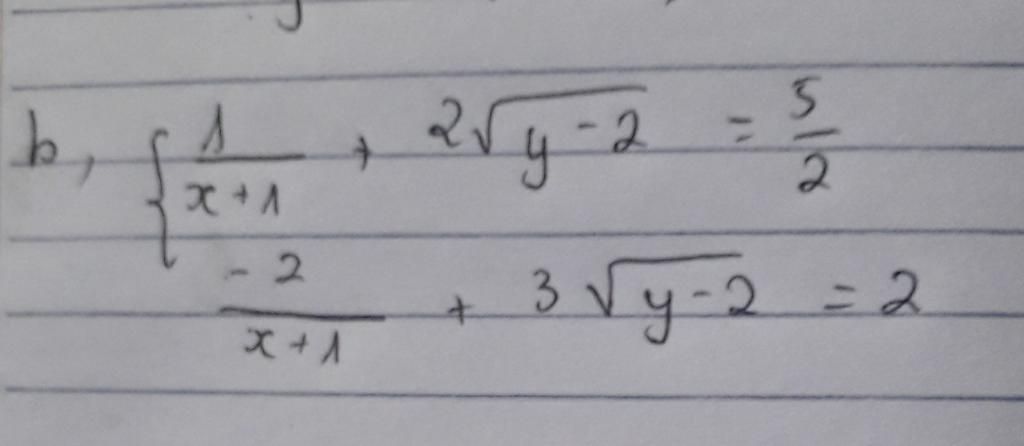 b, { 1/(x+1) + 2√(y-2) = 5/2
-2/(x+1) + 3√(y-2) = 2